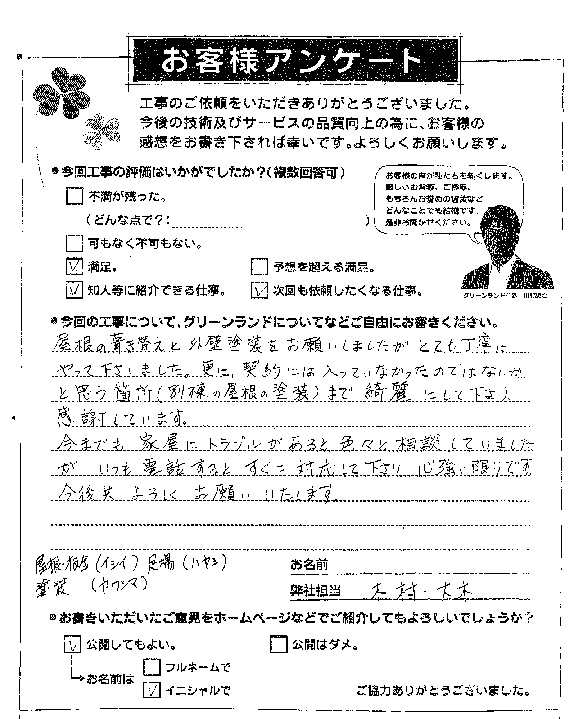 お客様アンケート
工事のご依頼をいただきありがとうございました。
今後の技術及びサービスの品質向上の為に、お客様の
感想をお書き下されば幸いです。よろしくお願いします。
今回工事の評価はいかがでしたか?(複数回答可)
不満が残った。
(どんな点で?: )
可もなく不可もない。
満足。
予想を超える満足。
知人等に紹介できる仕事。
次回も依頼したくなる仕事。
お客様の声が私たちを強くします。
厳しいお言葉、ご指導、
もちろんお褒めの言葉など
どんなことでも結構です。
是非お聞かせください。
今回の工事について、グリーンランドについてなどご自由にお書きください。
屋根の葺き替えと外壁塗装をお願いしましたがとても丁寧に
やって下さいました。更に、契約には入っていなかったのではないか
と思う箇所(別棟の屋根の塗装)まで綺麗にして下さり
感謝しています。
今までも家屋にトラブルがあると色々と相談していました
が いつも電話するとすぐに対応して下さり 心強い限りです
今後共 よろしく お願い いたします
屋根・板金(イシイ) 足場(ハヤシ)
塗装
お名前
弊社担当 木村・大木
お書きいただいたご意見をホームページなどでご紹介してもよろしいでしょうか?
公開してもよい。
公開はダメ。
お名前は
フルネームで
イニシャルで
ご協力ありがとうございました。